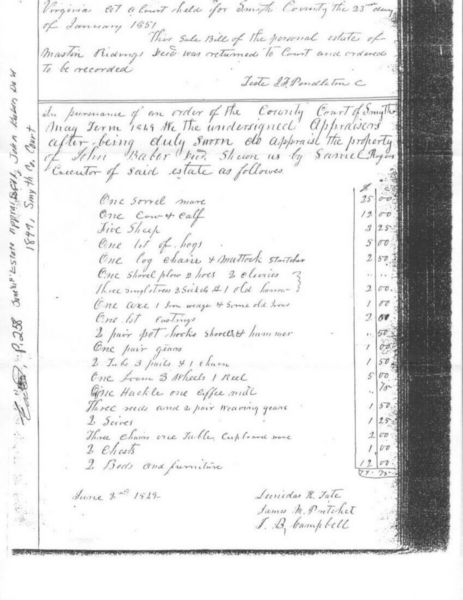 Virginia At a Court held for Smyth County the 23rd day
of January 1851
This Sale Bill of the personal estate of
Martin Ridings Decd was returned to Court and ordered
to be recorded
Teste Pendleton C
In pursuance of an order of the County Court of Smyth
May Term 1849 We the undersigned Appraisers
after being duly sworn do appraise the property
of John Decd Shewn us by
Executor of said estate as follows
One sorrel mare 25 00
One cow & calf 12 00
Five Sheep 3
One lot of hogs 5 00
One log chain & Mattock 2 50
One shovel plow 2 hoes 2 clevies
Three singletrees 2 Sickels & 1 old 2 00
One axe 1 Iron wedge & Some old Iron 1 00
One lot castings 2 00
2 pair pot hooks shovel & hammer 50
One pair 1 00
2 Tubs 3 pails & 1 churn 1 50
One Loom 3 Wheels 1 Reel 5 00
One Hackle one Coffee mill 75
Three reeds and 2 pair Weaving gears 1 50
2 1 25
Three chairs one Table, Cupboard 2 00
2 Chests 1 00
2 Beds and furniture 12 00
June 2nd 1849
R. Tate
James M. Pritchet
T. B. Campbell
P. 258
1849, Smyth Co. Court